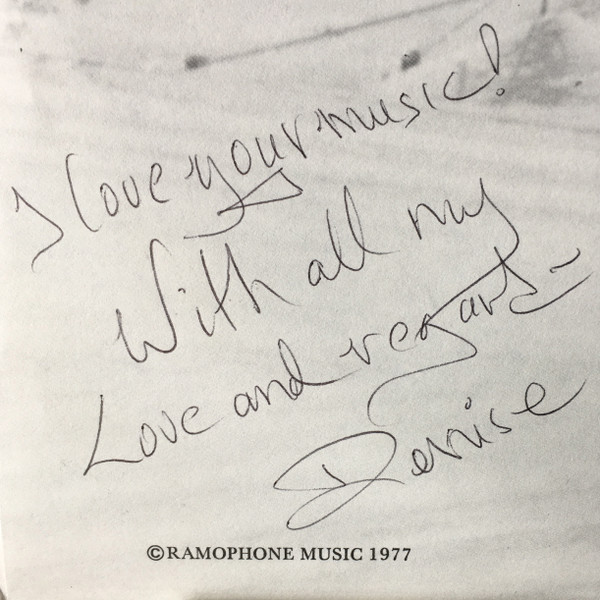 I love your music!
With all my
Love and regards –
Denise
©RAMOPHONE MUSIC 1977